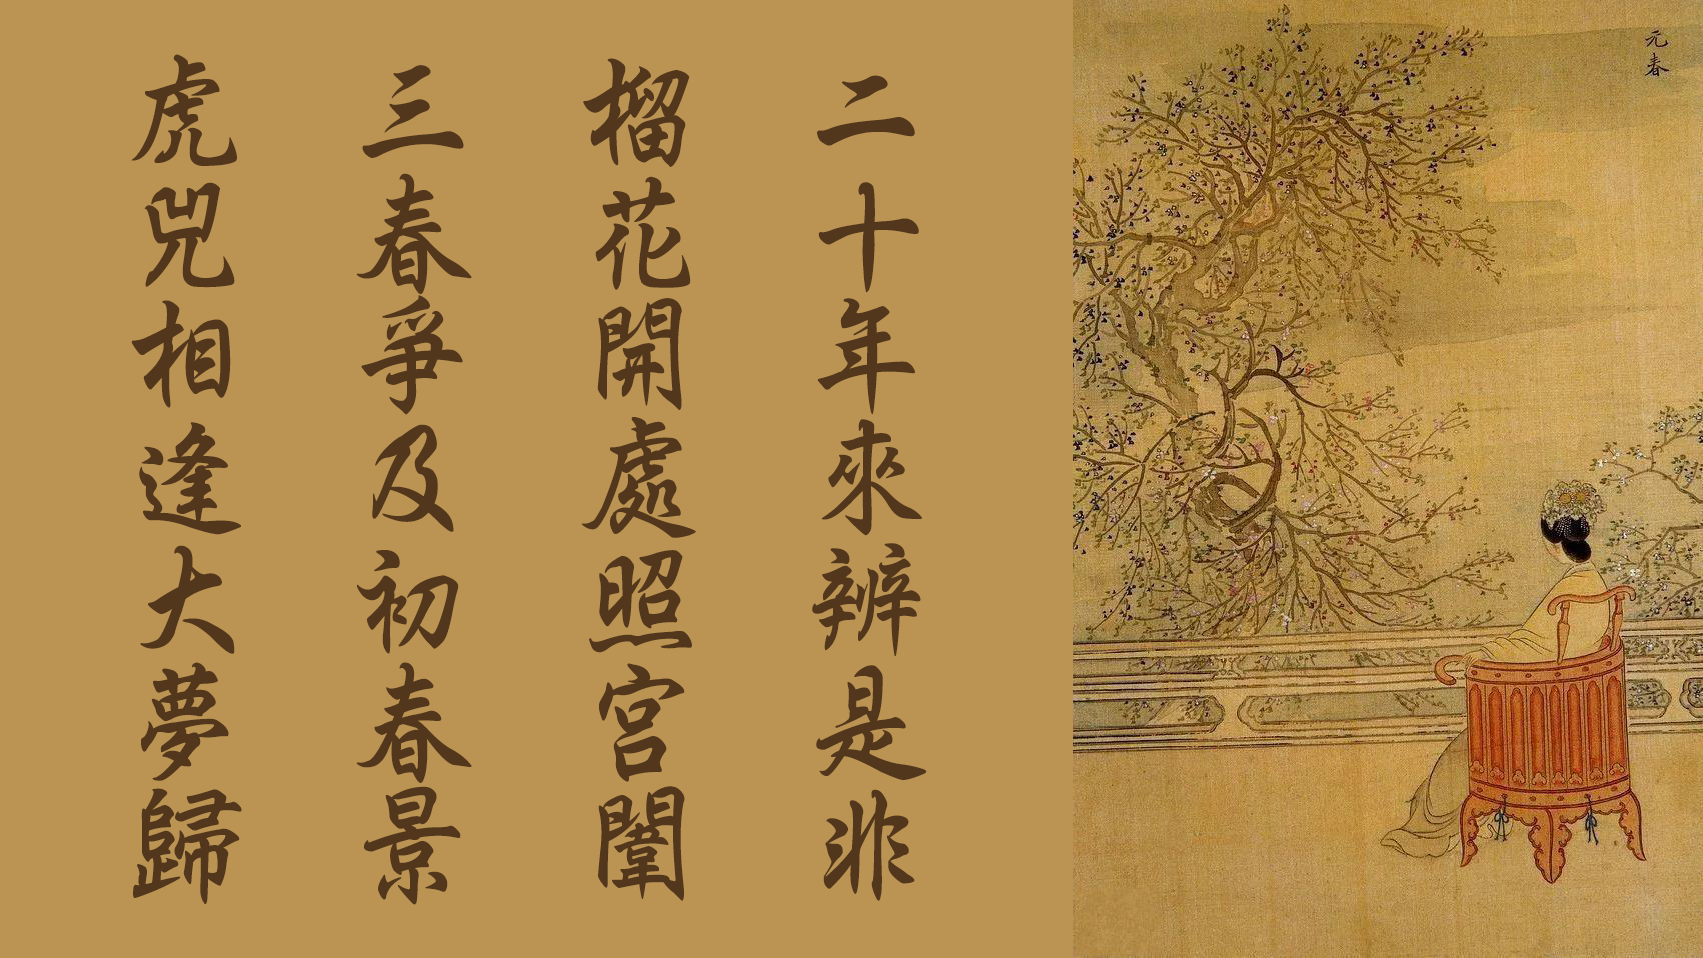 元春
二十年來辨是非
榴花開處照宮闈
三春爭及初春景
虎兕相逢大夢歸